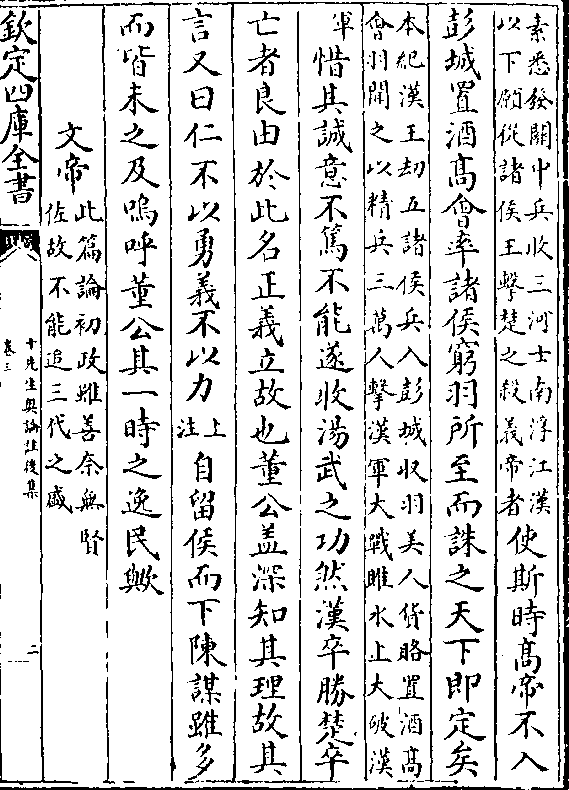 素悉發關中兵收三河士南浮江漢
以下願從諸侯王擊楚之殺義帝者
使斯時髙帝不入
彭城置酒髙會率諸侯窮羽所至而誅之天下即定矣
本紀漢王劫五諸侯兵入彭城收羽美人貨賂置酒髙
會羽聞之以精兵三萬人擊漢軍大戰睢水上大破漢
軍
惜其誠意不篤不能遂收湯武之功然漢卒勝楚卒
亡者良由於此名正義立故也董公盖深知其理故其
言又曰仁不以勇義不以力
上注
自留侯而下陳謀雖多
而皆未之及嗚呼董公其一時之逸民歟
文帝
此篇論初政雖善奈無賢
佐故不能追三代之盛
欽定四庫全書
十先生奥論註後集
卷三
二